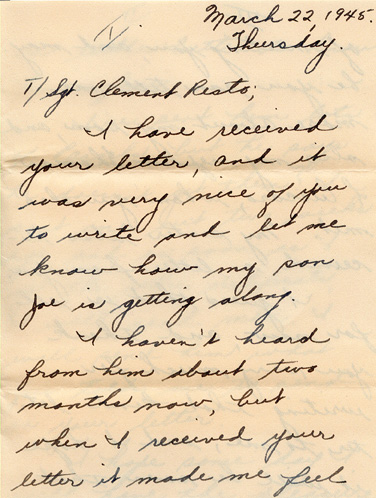 1/
March 22, 1945.
Thursday.
T/Sgt. Clement Resto;
I have received
your letter, and it
was very nice of you
to write and let me
know how my son
Joe is getting along.
I haven't heard
from him about two
months now, but
when I received your
letter it made me feel